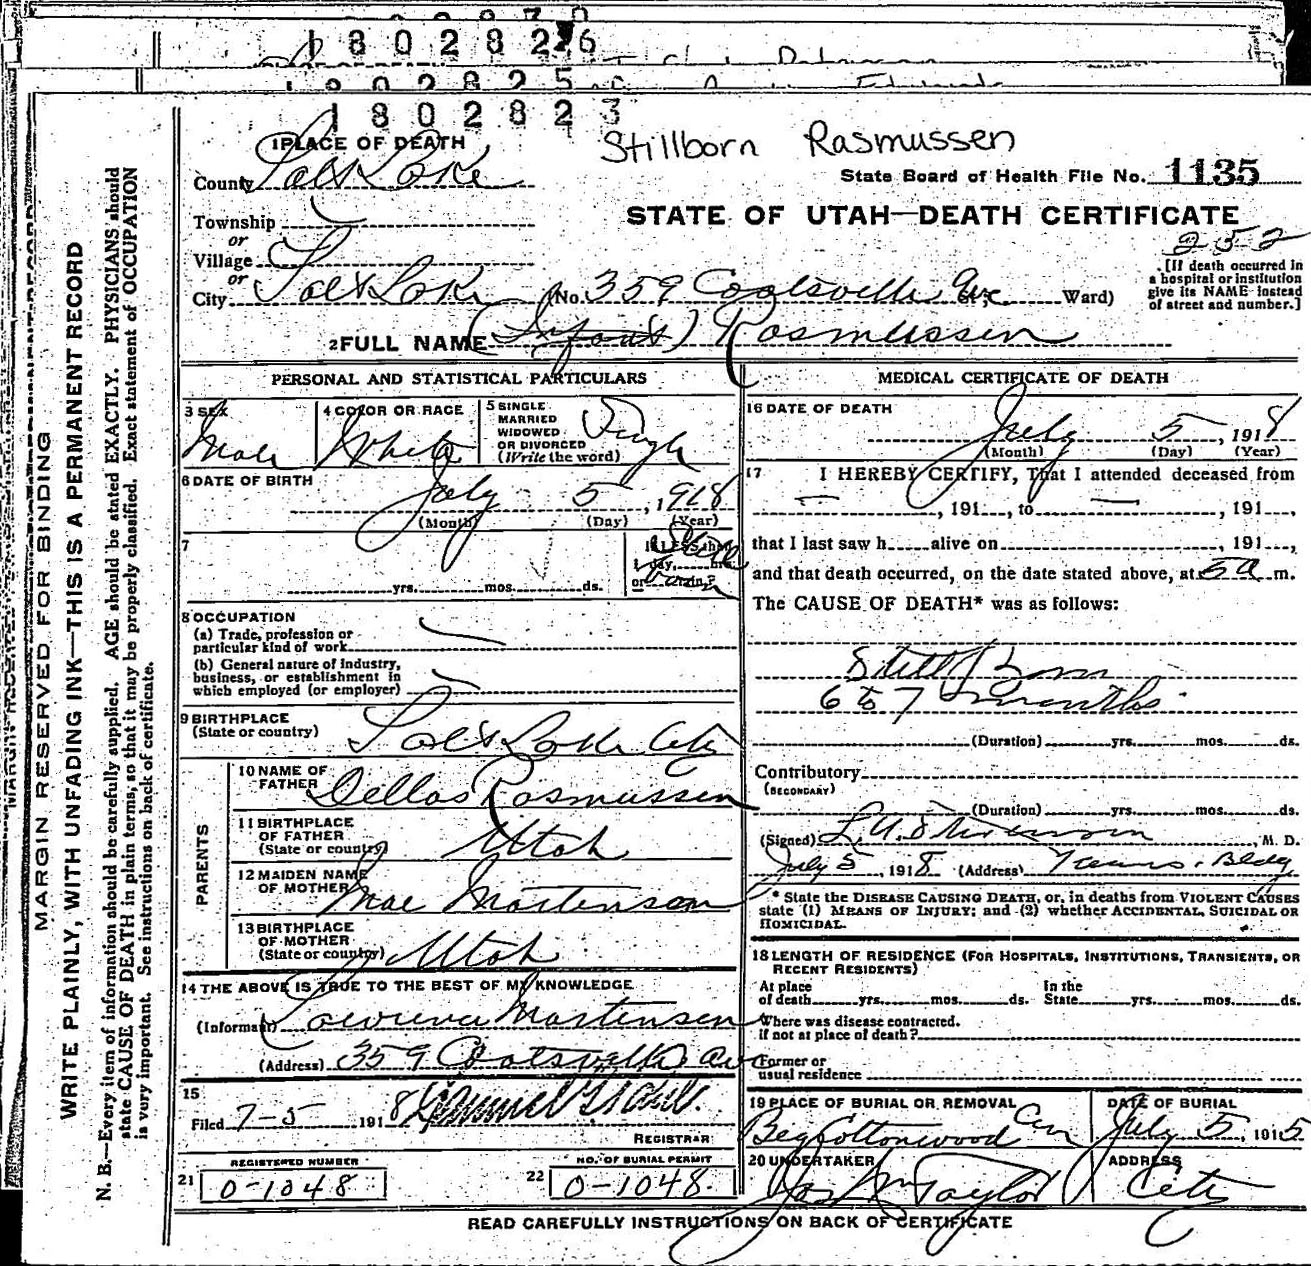 1802826
1802825
1802823
Stillborn Rasmussen
1 PLACE OF DEATH
County Salt Lake
State Board of Health File No. 1135
Township
STATE OF UTAH—DEATH CERTIFICATE
or
Village
252
or
City Salt Lake (No. 359 Coatsville Ave. Ward)
[If death occurred in
a hospital or institution
give its NAME instead
of street and number.]
2 FULL NAME (Infant) Rasmussen
PERSONAL AND STATISTICAL PARTICULARS
3 SEX
Male
4 COLOR OR RACE
White
5 SINGLE
MARRIED
WIDOWED
OR DIVORCED
(Write the word)
Single
6 DATE OF BIRTH
July 5, 1918
(Month) (Day) (Year)
7
yrs. mos. ds.
If LESS than
1 day, hrs
or min?
8 OCCUPATION
(a) Trade, profession or
particular kind of work
(b) General nature of Industry,
business, or establishment in
which employed (or employer)
9 BIRTHPLACE
(State or country)
Salt Lake City
PARENTS
10 NAME OF
FATHER
Dellas Rasmussen
11 BIRTHPLACE
OF FATHER
(State or country)
Utah
12 MAIDEN NAME
OF MOTHER
Mae Mortensen
13 BIRTHPLACE
OF MOTHER
(State or country)
Utah
14 THE ABOVE IS TRUE TO THE BEST OF MY KNOWLEDGE
(Informant) Mortensen
(Address) 359 Coatsville Ave
15
Filed 7-5 1918
REGISTRAR
REGISTERED NUMBER
21 0-1048
NO. OF BURIAL PERMIT
22 0-1048.
MEDICAL CERTIFICATE OF DEATH
16 DATE OF DEATH
July 5, 1918
(Month) (Day) (Year)
17 I HEREBY CERTIFY, That I attended deceased from
—, 191, to —, 191,
that I last saw h alive on, 191,
and that death occurred, on the date stated above, at 5 a m.
The CAUSE OF DEATH* was as follows:
Still Born
6 to 7 months
(Duration) yrs. mos. ds.
Contributory
(SECONDARY)
(Duration) yrs. mos. ds.
(Signed), M. D.
July 5, 1918 (Address) Bldg
* State the DISEASE CAUSING DEATH, or, in deaths from VIOLENT CAUSES
state (1) MEANS OF INJURY; and (2) whether ACCIDENTAL, SUICIDAL OR
HOMICIDAL.
18 LENGTH OF RESIDENCE (FOR HOSPITALS, INSTITUTIONS, TRANSIENTS, OR
RECENT RESIDENTS)
At place
of death yrs. mos. ds.
In the
State yrs. mos. ds.
Where was disease contracted.
if not at place of death?
Former or
usual residence
19 PLACE OF BURIAL OR REMOVAL
Big Cottonwood Cem
DATE OF BURIAL
July 5, 1915
20 UNDERTAKER
Jos Wm Taylor
ADDRESS
City
READ CAREFULLY INSTRUCTIONS ON BACK OF CERTIFICATE
MARGIN RESERVED FOR BINDING
WRITE PLAINLY, WITH UNFADING INK—THIS IS A PERMANENT RECORD
N. B.—Every item of information should be carefully supplied. AGE should be stated EXACTLY. PHYSICIANS should
state CAUSE OF DEATH in plain terms, so that it may be properly classified. Exact statement of OCCUPATION
is very important. See instructions on back of certificate.